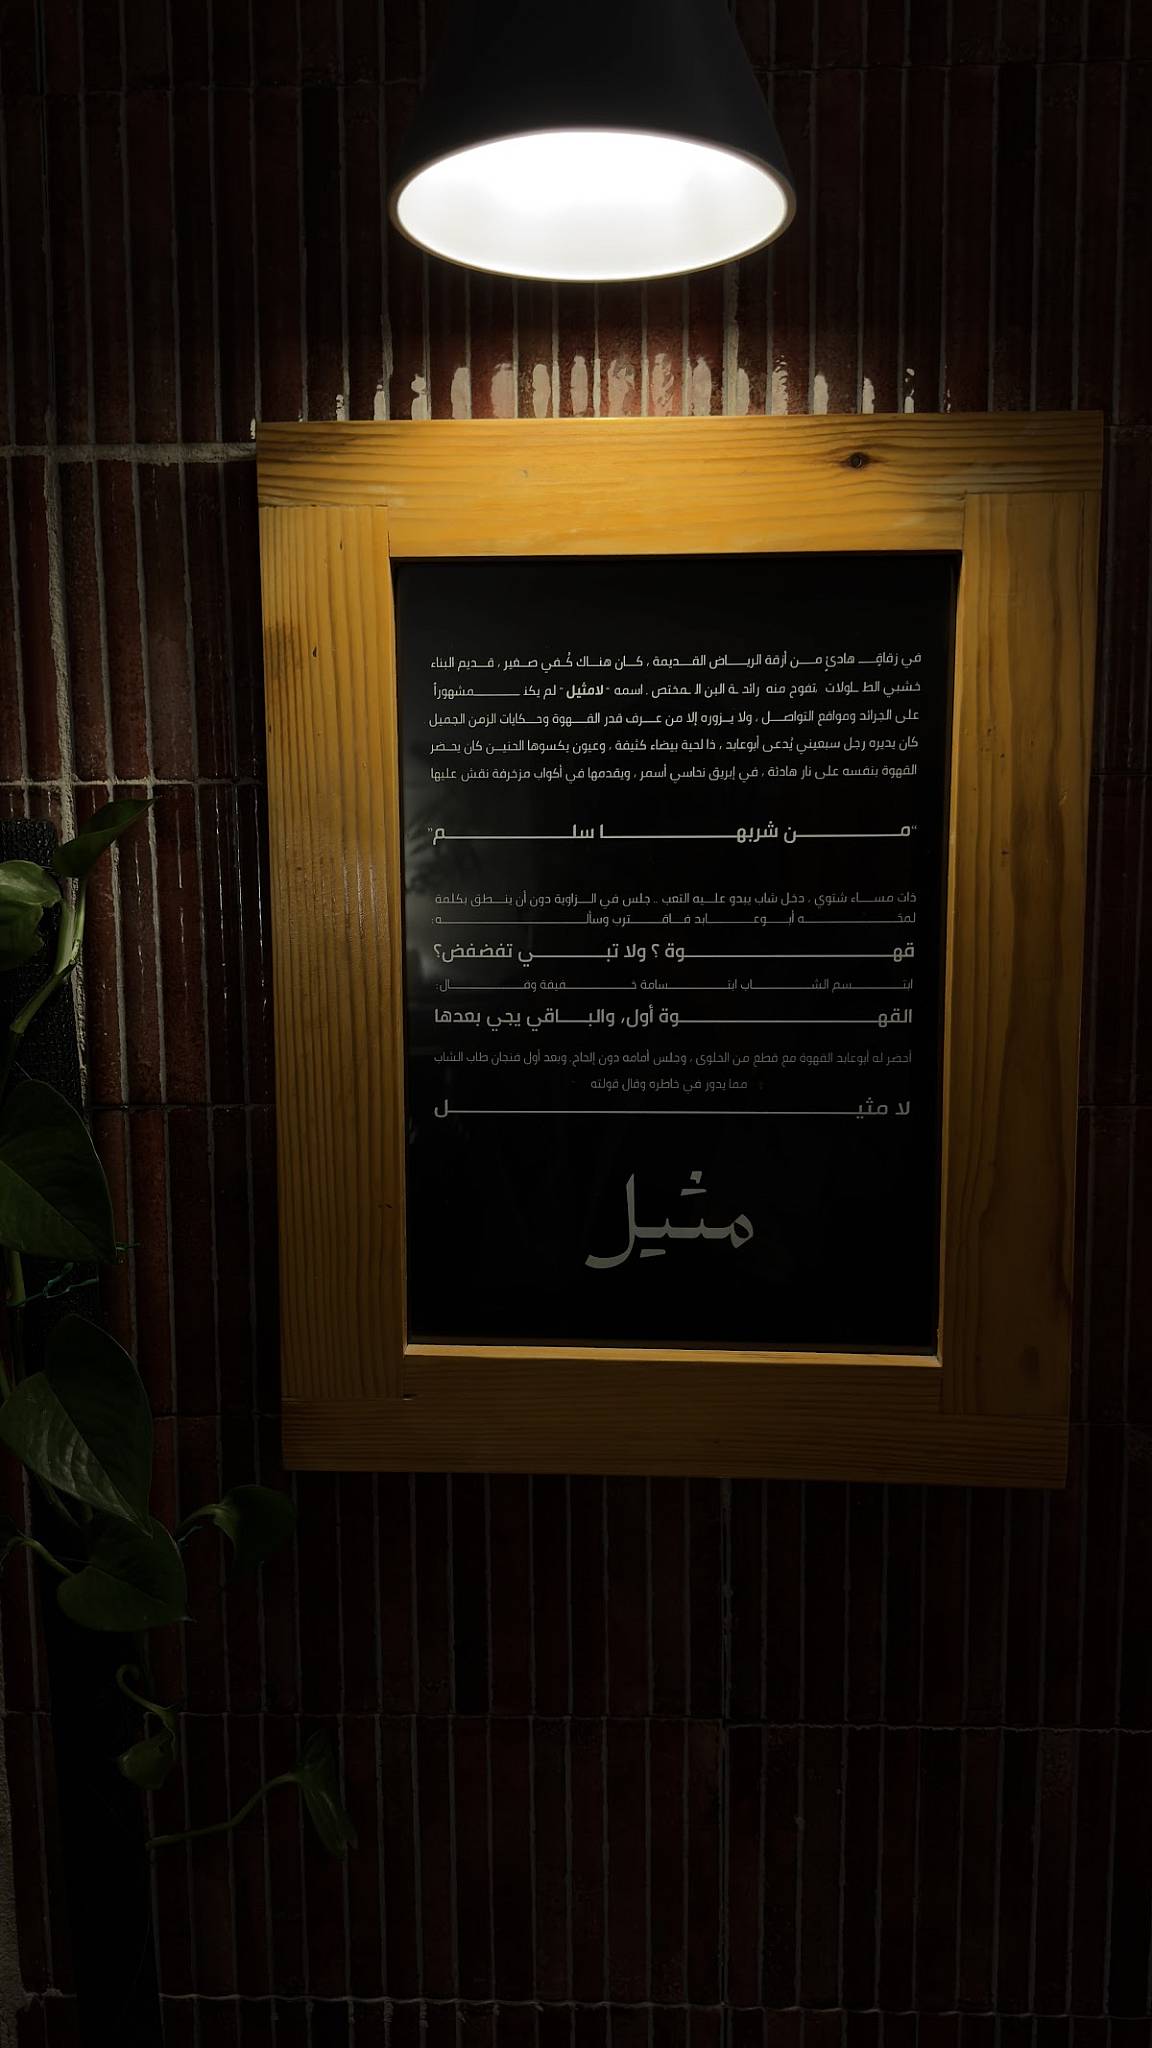 في زقاقٍ هادئٍ مـن أزقة الريـاض القـديمة ، كـان هنـاك كُـفي صـغير ، قـديم البناء
خشبي الطـاولات تفوح منه رائحـة البن المختص . اسمه "لامثيل" لم يكن مشهوراً
على الجرائد ومواقع التواصـل ، ولا يـزوره إلا من عـرف قدر القـهوة وحـكايات الزمن الجميل
كان يديره رجل سبعيني يُدعى أبوعابد ، ذا لحية بيضاء كثيفة ، وعيون يكسوها الحنيـن كان يحـضر
القهوة بنفسه على نار هادئة ، في إبريق نحاسي أسمر ، ويقدمها في أكواب مزخرفة نقش عليها
"مـن شربهـا سلـم"
ذات مسـاء شتوي ، دخل شاب يبدو علـيه التعب .. جلس في الـزاوية دون أن ينـطق بكلمة
لمحـه أبـوعـابد فـاقـترب وسألـه:
قهـوة ؟ ولا تبـي تفضفض؟
ابتـسم الشـاب ابتـسامة خـفيفة وقـال:
القهـوة أول، والبـاقي يجي بعدها
أحضر له أبوعابد القهوة مع قطع من الحلوى ، وجلس أمامه دون إلحاح. وبعد أول فنجان طاب الشاب
مما يدور في خاطره وقال قولته
لا مثيـل
مثيل